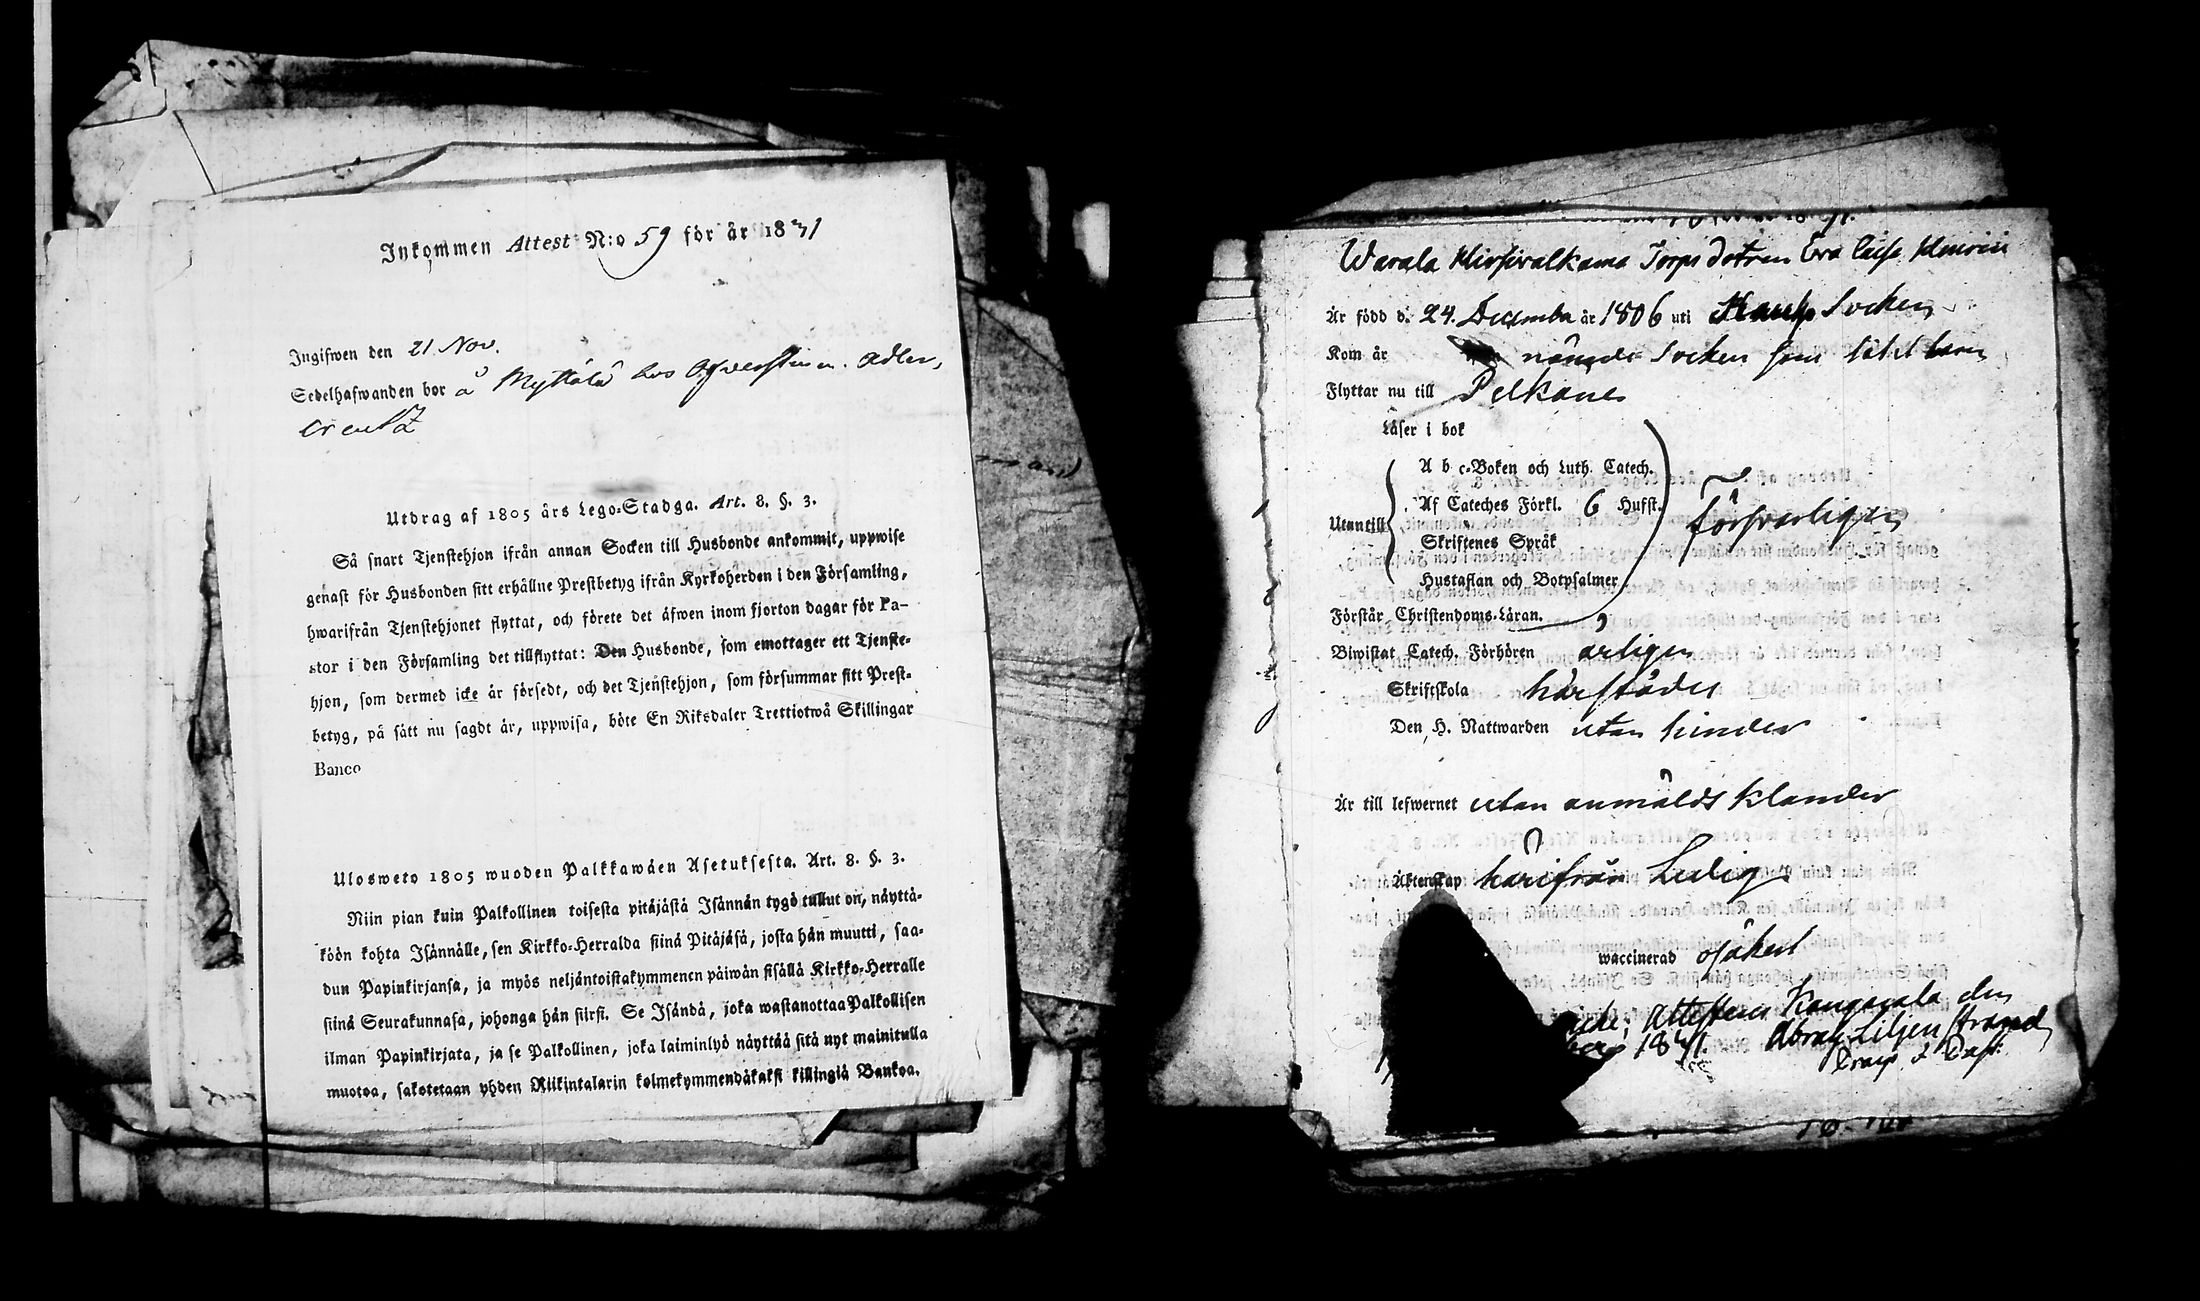 Inkommen Attest N:o 59 för år 1831
Ingifwen den 21 Nov.
Sedelhafwanden bor å Myttälä hos Adler,
creutz
Utdrag af 1805 års Lego-Stadga. Art. 8. §. 3.
Så snart Tjenstehjon ifrån annan Socken till Husbonde ankommit, uppwise
genast för Husbonden sitt erhållne Prestbetyg ifrån Kyrkoherden i den Församling,
hwarifrån Tjenstehjonet flyttat, och förete det äfwen inom fjorton dagar för Pa-
stor i den Församling det tillflyttat: Den Husbonde, som emottager ett Tjenste-
hjon, som dermed icke är försedt, och det Tjenstehjon, som försummar sitt Prest-
betyg, på sätt nu sagdt är, uppwisa, böte En Riksdaler Trettiotwå Skillingar
Banco
Ulosweto 1805 wuoden Palkkawäen Asetuksesta. Art. 8. §. 3.
Niin pian kuin Palkollinen toisesta pitäjästä Isännän tygö tullut on, näyttä-
köön kohta Isännälle, sen Kirkko-Herralda siinä Pitäjäsä, josta hän muutti, saa-
dun Papinkirjansa, ja myös neljäntoistakymmenen päiwän sisällä Kirkko-Herralle
siinä Seurakunnasa, johonga hän siirsi. Se Isändä, joka wastanottaa Palkollisen
ilman Papinkirjata, ja se Palkollinen, joka laiminlyö näyttää sitä nyt mainitulla
muotoa, sakotetaan yhden Riikintalarin kolmekymmendäkaksi killingiä Bankoa.
Warala Hirsivalkama Torps dotren Eva Caisa Henrici
Är född d. 24. December år 1806 uti Socken
Kom år nämde Socken som litet barn
Flyttar nu till Pelkäne
Läser i bok
A b c-Boken och Luth. Catech.
Utantill Af Cateches Förkl. 6 Hufst. Försvarligen
Skriftenes Språk
Hustaflan och Botpsalmer
Förstår Christendoms-Läran.
Biwistat Catech. Förhören årligen
Skriftskola härstädes
Den H. Nattwarden utan hinder
Är till lefwernet utan anmäldt klander
Äktenskap härifrån Ledig
waccinerad osäkert
Attesterar Kangasala den
1831. Abrah. Liljenstrand